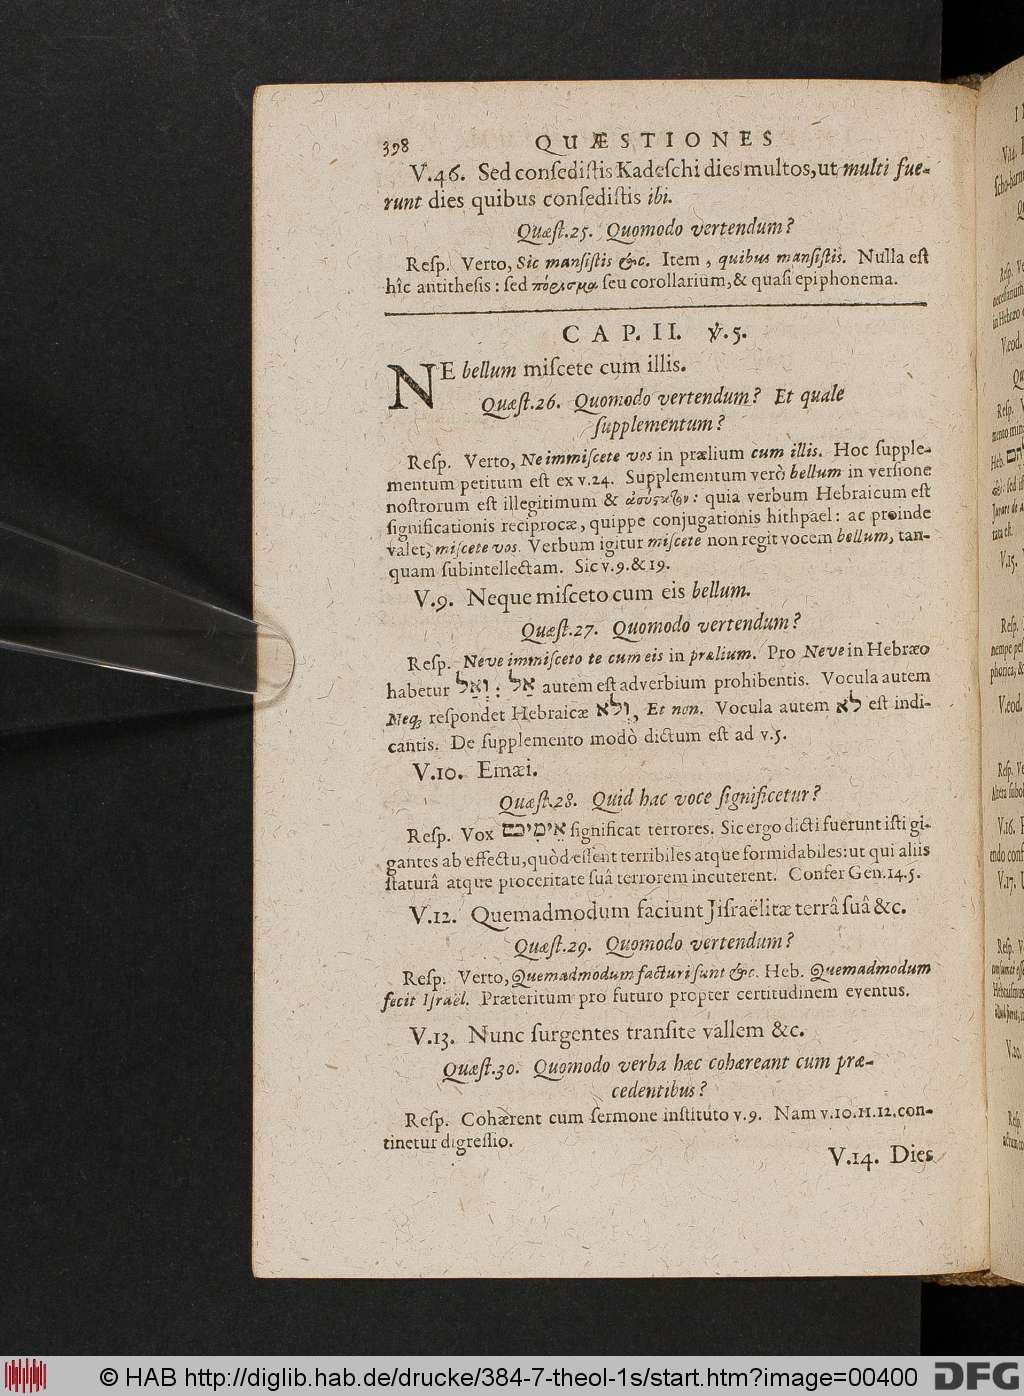 398 QUÆSTIONES
V.46. Sed conſediſtis Kadeſchi dies multos, ut multi fue-
runt dies quibus conſediſtis ibi.
Quæſt.25. Quomodo vertendum?
Reſp. Verto, Sic manſiſtis &c. Item, quibus manſiſtis. Nulla eſt
hîc antitheſis: ſed πόρισμα ſeu corollarium, & quaſi epiphonema.
CAP. II. ℣.5.
NE bellum miſcete cum illis.
Quæſt.26. Quomodo vertendum? Et quale
ſupplementum?
Reſp. Verto, Ne immiſcete vos in prælium cum illis. Hoc ſupple-
mentum petitum eſt ex v.24. Supplementum verò bellum in verſione
noſtrorum eſt illegitimum & ἀσύςατον: quia verbum Hebraicum eſt
ſignificationis reciprocæ, quippe conjugationis hithpael: ac proinde
valet, miſcete vos. Verbum igitur miſcete non regit vocem bellum, tan-
quam ſubintellectam. Sic v.9.&19.
V.9. Neque miſceto cum eis bellum.
Quæſt.27. Quomodo vertendum?
Reſp. Neve immiſceto te cum eis in prælium. Pro Neve in Hebræo
habetur וְאַל: אַל autem eſt adverbium prohibentis. Vocula autem
Neq; reſpondet Hebraicæ וְלֹא, Et non. Vocula autem לֹא eſt indi-
cantis. De ſupplemento modò dictum eſt ad v.5.
V.10. Emæi.
Quæſt.28. Quid hac voce ſignificetur?
Reſp. Vox אֵימִיכם ſignificat terrores. Sic ergo dicti fuerunt iſti gi-
gantes ab effectu, quòd eſſent terribiles atque formidabiles: ut qui aliis
ſtaturâ atque proceritate ſuâ terrorem incuterent. Confer Gen.14.5.
V.12. Quemadmodum faciunt Jiſraëlitæ terrâ ſuâ &c.
Quæſt.29. Quomodo vertendum?
Reſp. Verto, Quemadmodum facturi ſunt &c. Heb. Quemadmodum
fecit Iſraël. Præteritum pro futuro propter certitudinem eventus.
V.13. Nunc ſurgentes tranſite vallem &c.
Quæſt.30. Quomodo verba hæc cohæreant cum præ-
cedentibus?
Reſp. Cohærent cum ſermone inſtituto v.9. Nam v.10.11.12. con-
tinetur digreſſio.
V.14. Dies
© HAB http://diglib.hab.de/drucke/384-7-theol-1s/start.htm?image=00400
DFG